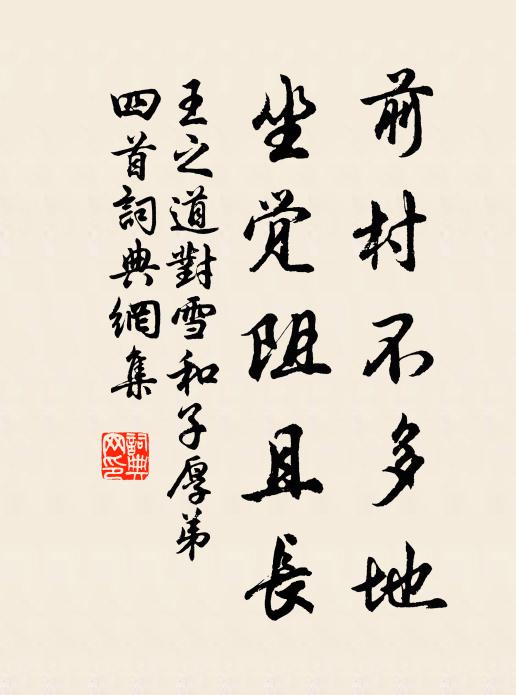 前村不多地
坐觉阻且長
王之道對雪和子厚弟
四首詞典網集
詞典
网印